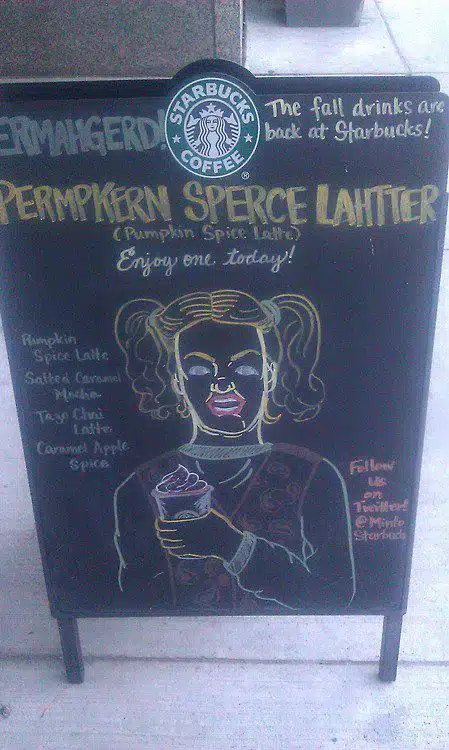 ERMAHGERD!
STARBUCKS
COFFEE
®
The fall drinks are
back at Starbucks!
PERMPKERN SPERCE LAHTTER
(Pumpkin Spice Latte)
Enjoy one today!
Pumpkin
Spice Latte
Salted Caramel
Mocha
Tazo Chai
Latte
Caramel Apple
Spice
Follow
us
on
Twitter!